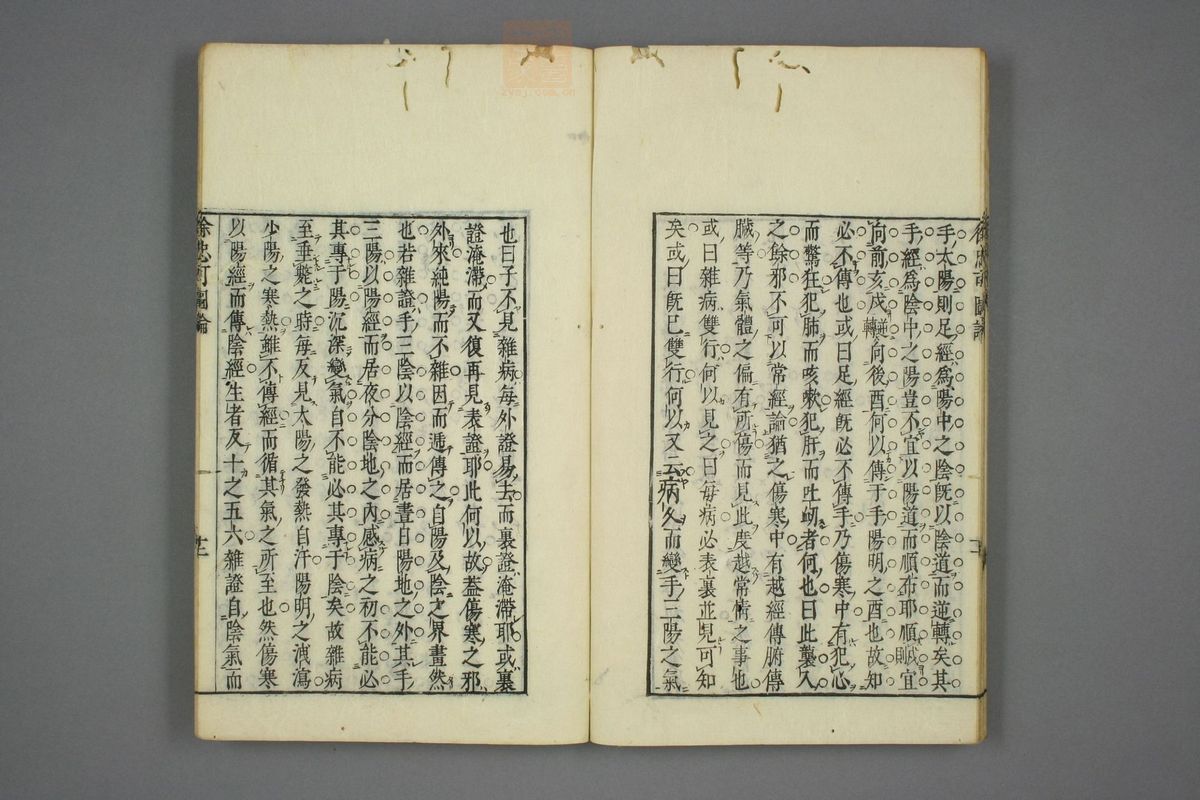 手太陽則足經爲陽中之陰旣以陰道而逆轉矣其
手經爲陰中之陽豈不宜以陽道而順布耶順則宜
向前亥戌逆轉向後酉何以傳于手陽明之酉也故知
必不傳也或曰足經旣必不傳手乃傷寒中有犯心
而驚狂犯肺而咳嗽犯肝而吐衄者何也曰此襲入
之餘邪不可以常經論猶之傷寒中有越經傳腑傳
臟等乃氣體之偏有所傷而見此度越常情之事也
或曰雜病雙行何以見之曰毎病必表裏並見可知
矣或曰旣已雙行何以又云病久而變手三陽之氣
也曰子不見雜病毎外證易去而裏證淹滯耶或裏
證淹滯而又復再見表證耶此何以故葢傷寒之邪
外來純陽而不雜因而遞傳之自陽及陰之界畫然
也若雜證手三陰以陰經而居晝日陽地之外其手
三陽以陽經而居夜分陰地之內感病之初不能必
其專于陽沉深變氣自不能必其專于陰矣故雜病
至垂斃之時毎反見太陽之發熱自汗陽明之洩瀉
少陽之寒熱雖不傳經而循其氣之所至也然傷寒
以陽經而傳陰經生者反十之五六雜證自陰氣而
徐忠可圖論
zysj.com.cn